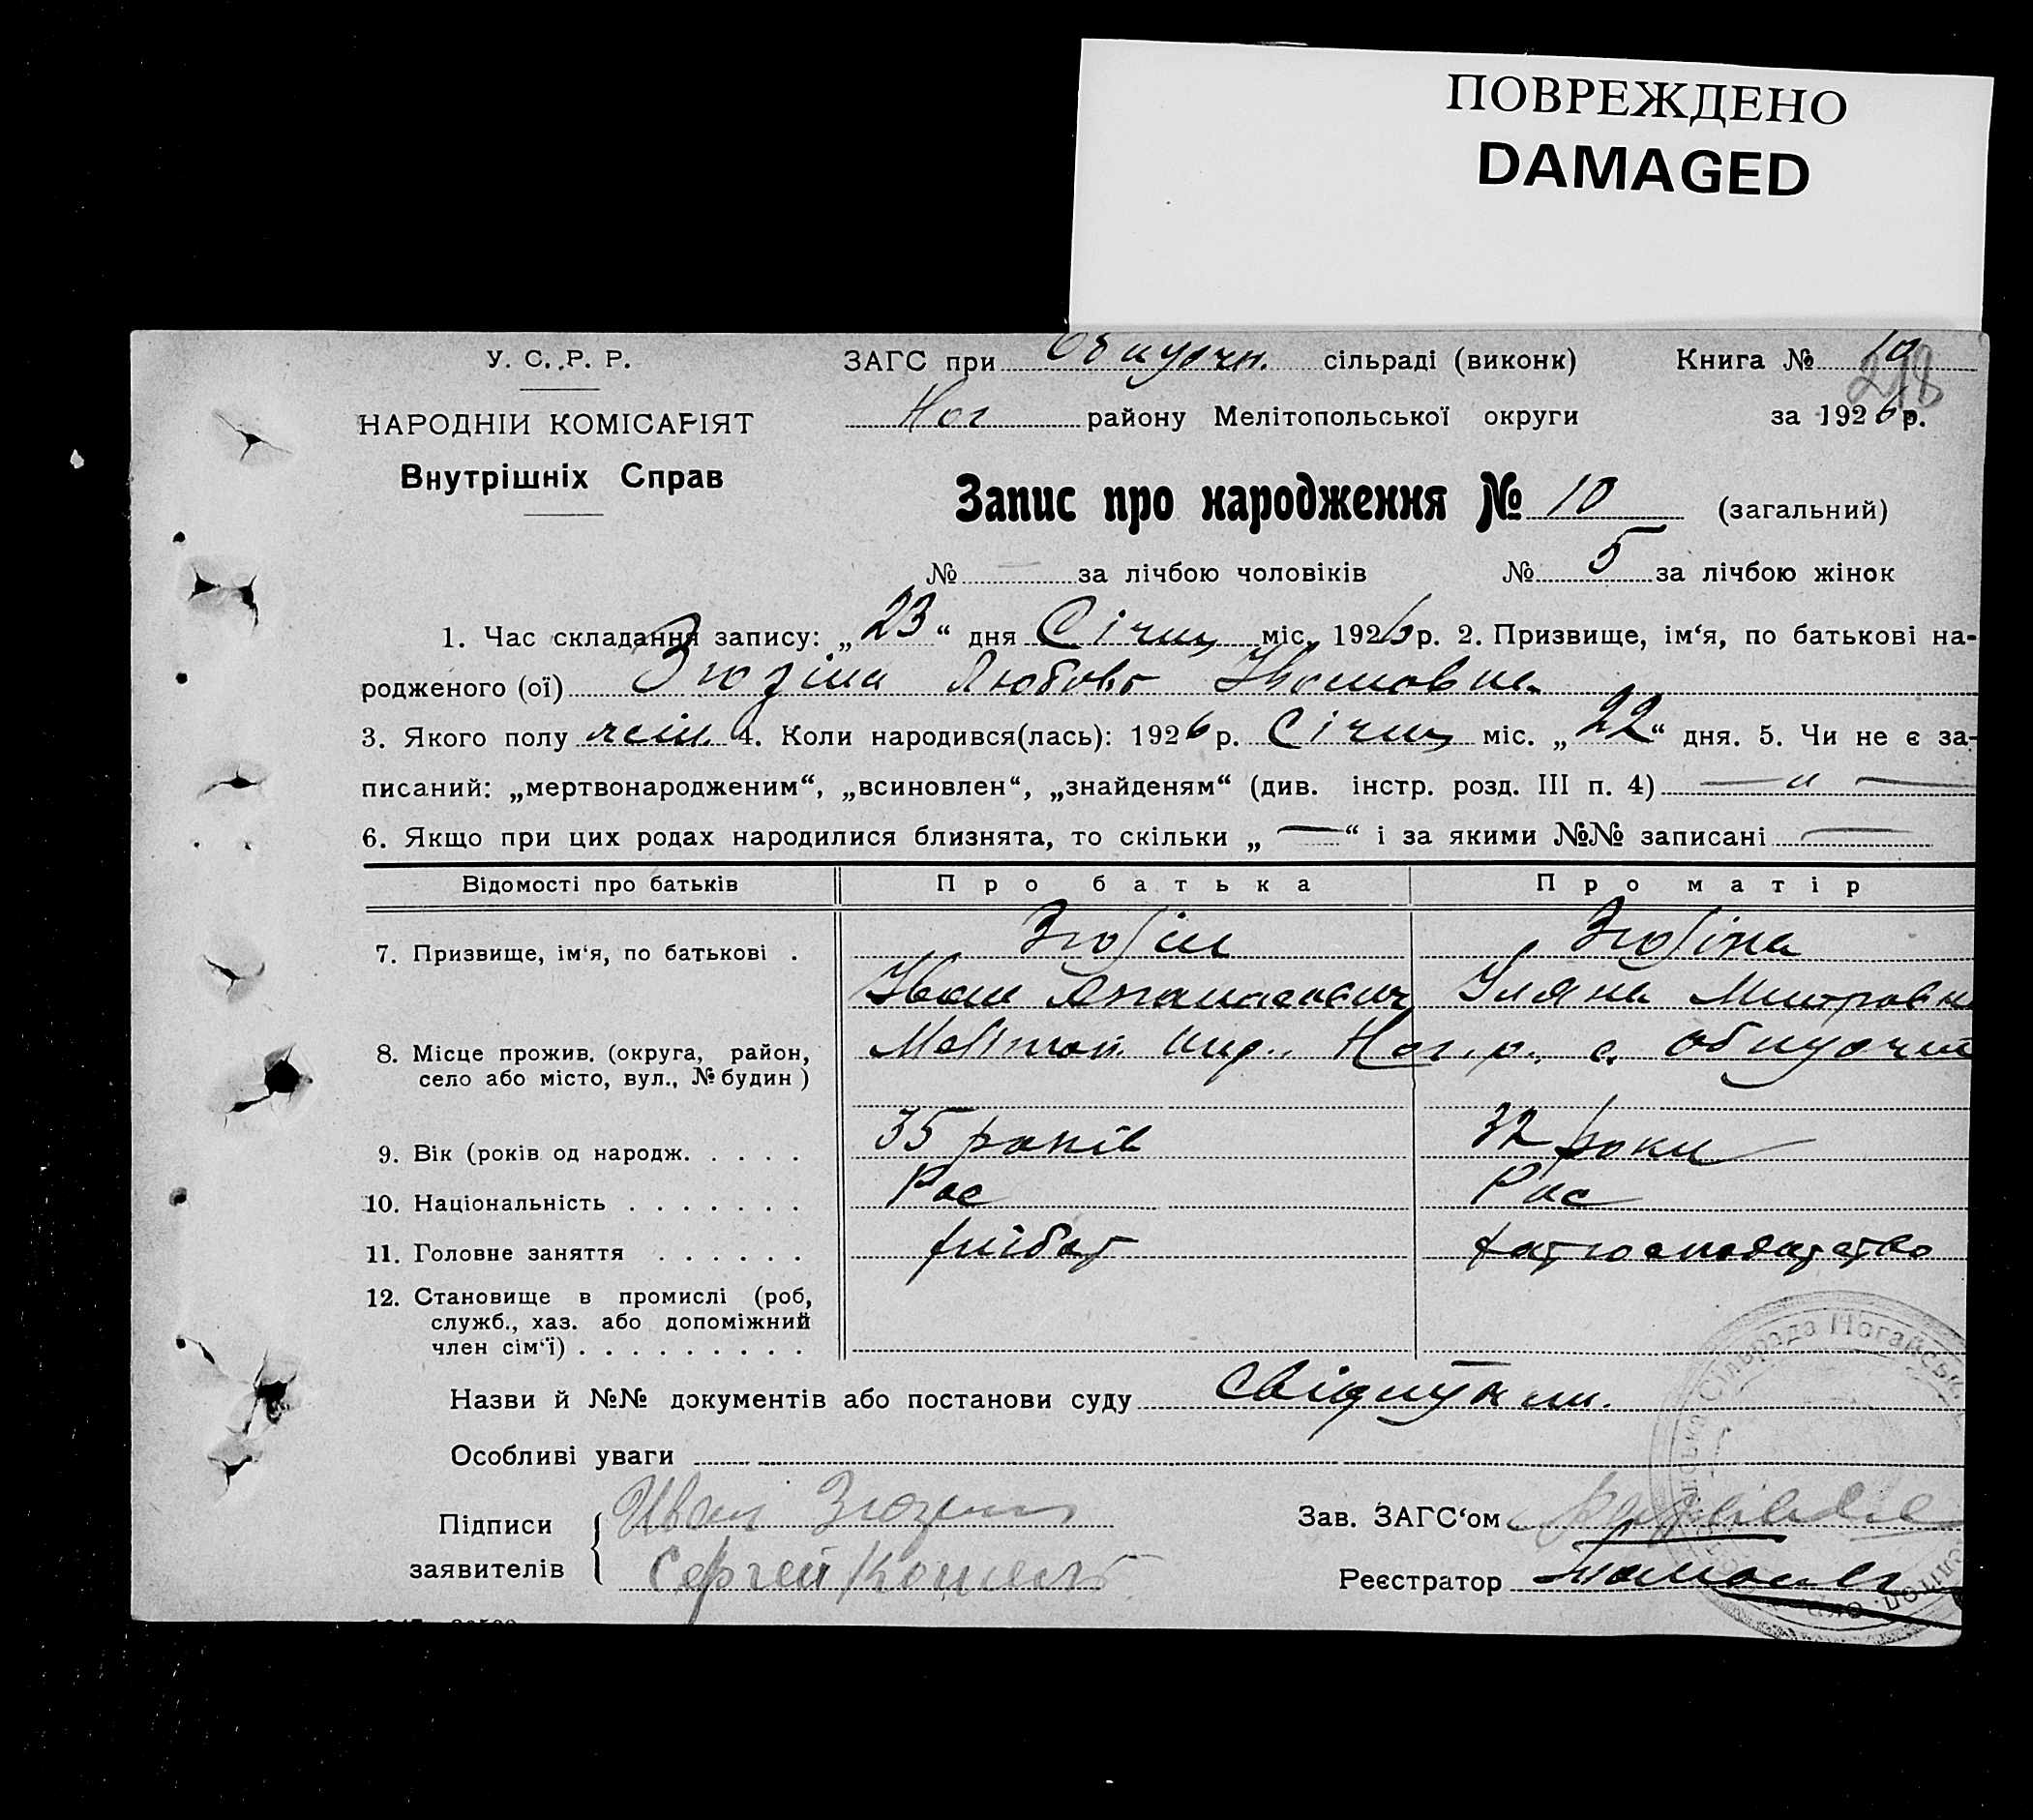 ПОВРЕЖДЕНО
DAMAGED
У. С. Р. Р.
ЗАГС при Обиточн. сільраді (виконк) Книга № 10
218
НАРОДНІЙ КОМІСАРІЯТ
Ног району Мелітопольської округи за 1926 р.
Внутрішніх Справ
Запис про народження № 10 (загальний)
№ — за лічбою чоловіків № 5 за лічбою жінок
1. Час складання запису: „23“ дня Січня міс. 1926 р. 2. Призвище, ім‘я, по батькові на-
родженого (ої) Зюзіна Любовь Ивановна
3. Якого полу жін. 4. Коли народився(лась): 1926 р. Січня міс. „22“ дня. 5. Чи не є за-
писаний: „мертвонародженим“, „всиновлен“, „знайденям“ (див. інстр. розд. III п. 4) — „ —
6. Якщо при цих родах народилися близнята, то скільки „ — “ і за якими №№ записані —
Відомості про батьків Про батька Про матір
7. Призвище, ім‘я, по батькові . Зюзін Зюзіна
Іван Уляна Митровна
8. Місце прожив. (округа, район, Меліт. Ног. р. с. Обиточне
село або місто, вул., № будин )
9. Вік (років од народж. . . . . 35 років 32 роки
10. Національність . . . . . . . Рос Рос
11. Головне заняття . . . . . . хлібор хатгосподарство
12. Становище в промислі (роб,
служб., хаз. або допоміжний
член сім‘ї) . . . . . . . . .
Назви й №№ документів або постанови суду
Особливі уваги
Підписи Иван Зюзин Зав. ЗАГС‘ом
заявителів Сергей Кошель Реєстратор
Сільрада Ногайськ